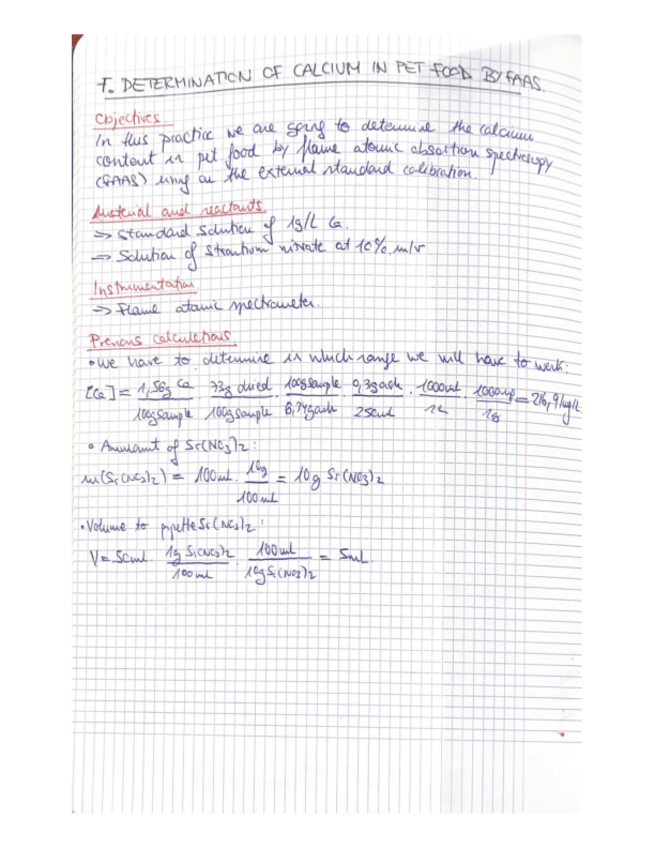 7. DETERMINATION OF CALCIUM IN PET FOOD BY FAAS.
Objectives
In this practice we are going to determine the calcium
content in pet food by flame atomic absortion spectroscopy
(FAAS) using the external standard calibration.
Material and reactants
=> Standard solution of 1g/L Ca.
=> Solution of Strontium nitrate at 10% m/v
Instrumentation
=> Flame atomic spectrometer.
Previous calculations
• We have to determine in which range we will have to work:
[Ca] = 1,56g Ca / 100g sample · 93g dried / 100g sample · 100g sample / 6,74g ash · 0,3g ash / 250mL · 1000mL / 1L · 1000mg / 1g =
• Ammount of Sr(NO3)2:
m(Sr(NO3)2) = 100mL · 10g / 100mL = 10g Sr(NO3)2
• Volume to pipette Sr(NO3)2:
V = 50mL · 1g Sr(NO3)2 / 100mL · 100mL / 10g Sr(NO3)2 = 5mL.